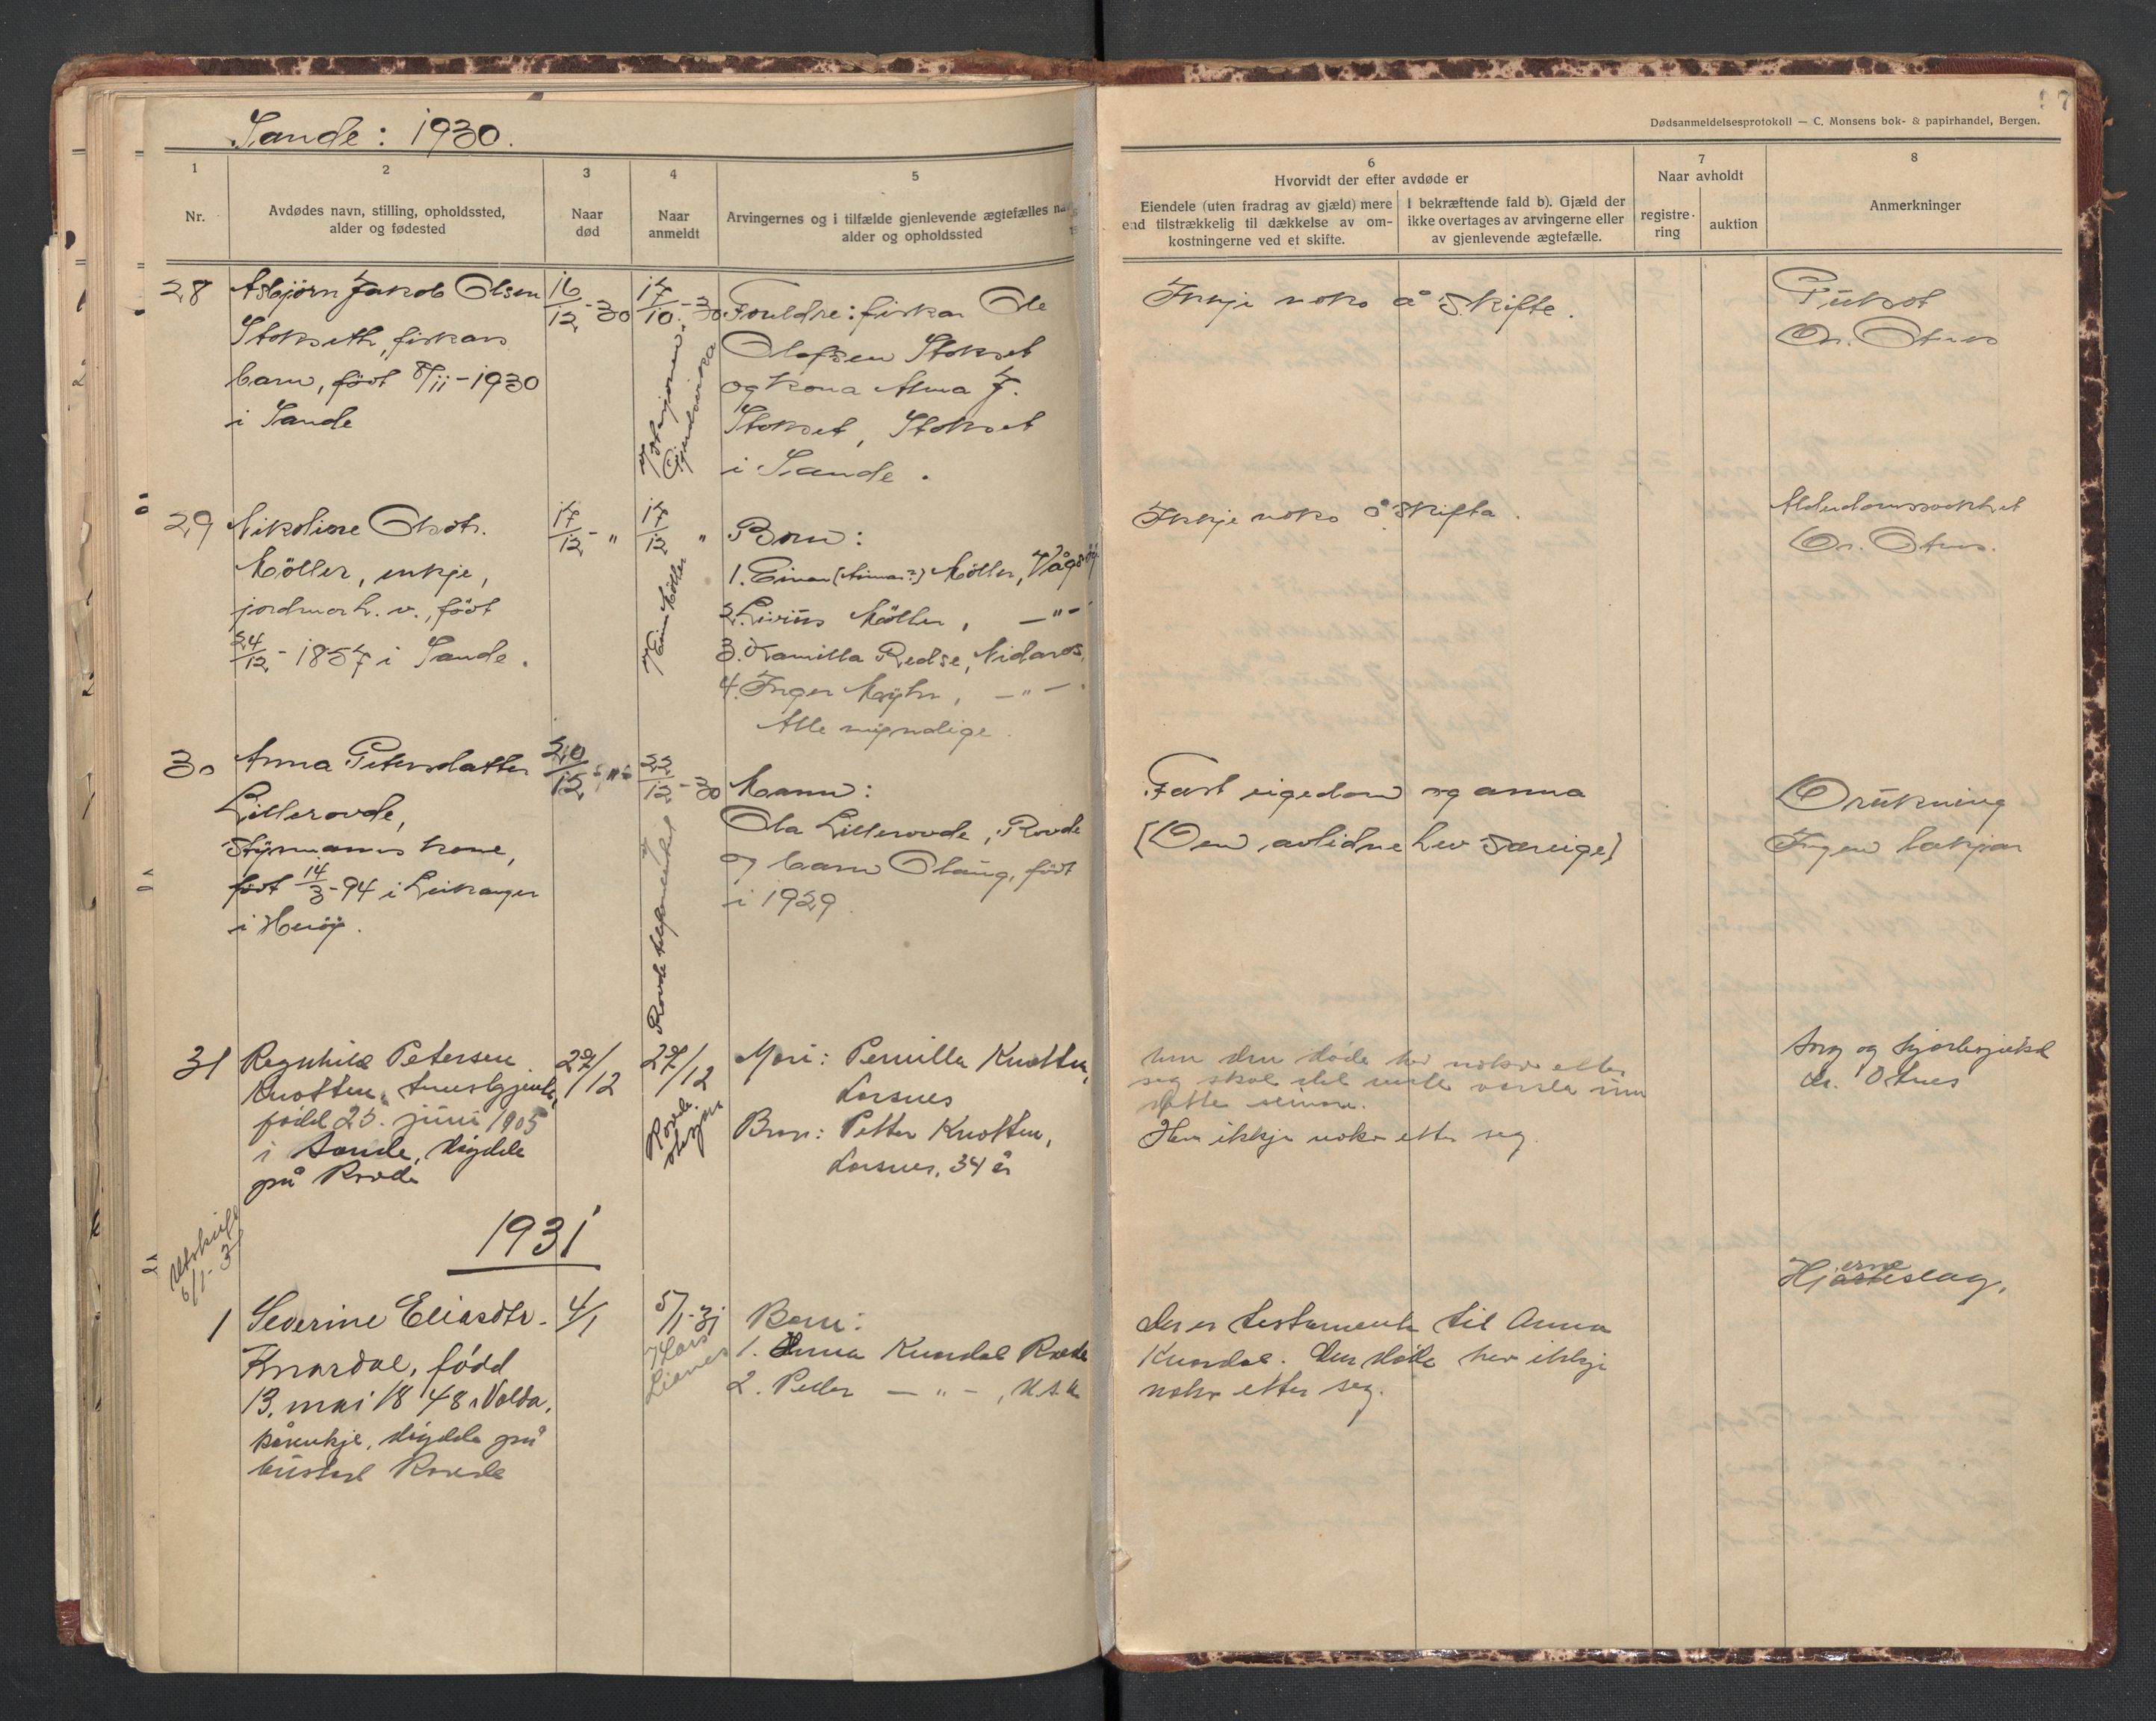 Sande: 1930.
Dødsanmeldelsesprotokoll — C. Monsens bok- & papirhandel, Bergen.
1
Nr.
2
Avdødes navn, stilling, opholdssted,
alder og fødested
3
Naar
død
4
Naar
anmeldt
5
Arvingernes og i tilfælde gjenlevende ægtefælles
alder og opholdssted
6
Hvorvidt der efter avdøde er
Eiendele (uten fradrag av gjæld) mere
end tilstrækkelig til dækkelse av om-
kostningerne ved et skifte.
I bekræftende fald b). Gjæld der
ikke overtages av arvingerne eller
av gjenlevende ægtefælle.
7
Naar avholdt
registre-
ring
auktion
8
Anmerkninger
28
Asbjørn Jakob Olsen
Stokseth, fiskars
barn, født 8/11-1930
i Sande
16/12-30
17/10.-30
Foreldre: fiskar Ole
Olafsen Stokset
og kona Alma J.
Stokset, Stokset
i Sande.
Ikkje noko å skifte.
Dr. Otnes
29
Nikoline Olsdtr.
Möller, enkje,
jordmor h. v., født
24/12-1857 i Sande.
17/12- "
17/12 "
v/ Einar Möller
Born:
1. Einar (Aimar?) Möller, Vågsøy
2. Livius Möller, —"—
3. Kamilla Redse, Nidaros,
4. Inger Myhr, —"—.
Alle myndige.
Ikkje noko å skifta.
Alderdomssvakhet
Dr. Otnes.
30
Anna Petersdatter
Lillerovde,
Styrmanns kone,
født 14/3-94 i Leikanger
i Herøy.
20/12-"-
22/12-30
Mann:
Ola Lillerovde, Rovde
og barn Olaug, født
i 1929.
Fast eigedom og anna
(Den avlidne hev særeige)
Drukning
Ingen lækjar
31
Ragnhild Petersen
Knotten, tenestgjente,
fødd 25. juni 1905
i Sande, døydde
på Rovde
29/12
29/12
Mori: Pernilla Knotten,
Larsnes
Bror: Petter Knotten,
Larsnes, 34 år
Um den døde hev noko etter
seg skal det verte varsla um
dette seinare.
Hev ikkje noko etter seg.
dr. Otnes
1931
1
Severine Eliasdtr.
Knardal, fødd
13. mai 1848 i Volda,
enkje, døydde på
bustad Rovde
4/1
5/1-31
Born:
1. Anna Knardal Rovde
2. Peder —"—, U.S.A
Der er testamente til Anna
Knardal. Den døde hev ikkje
noko etter seg.
Hjerneslag,